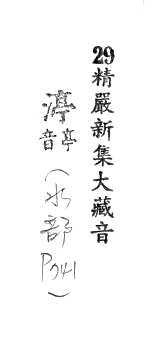 29精嚴新集大藏音
渟
音亭
(水部
P041)